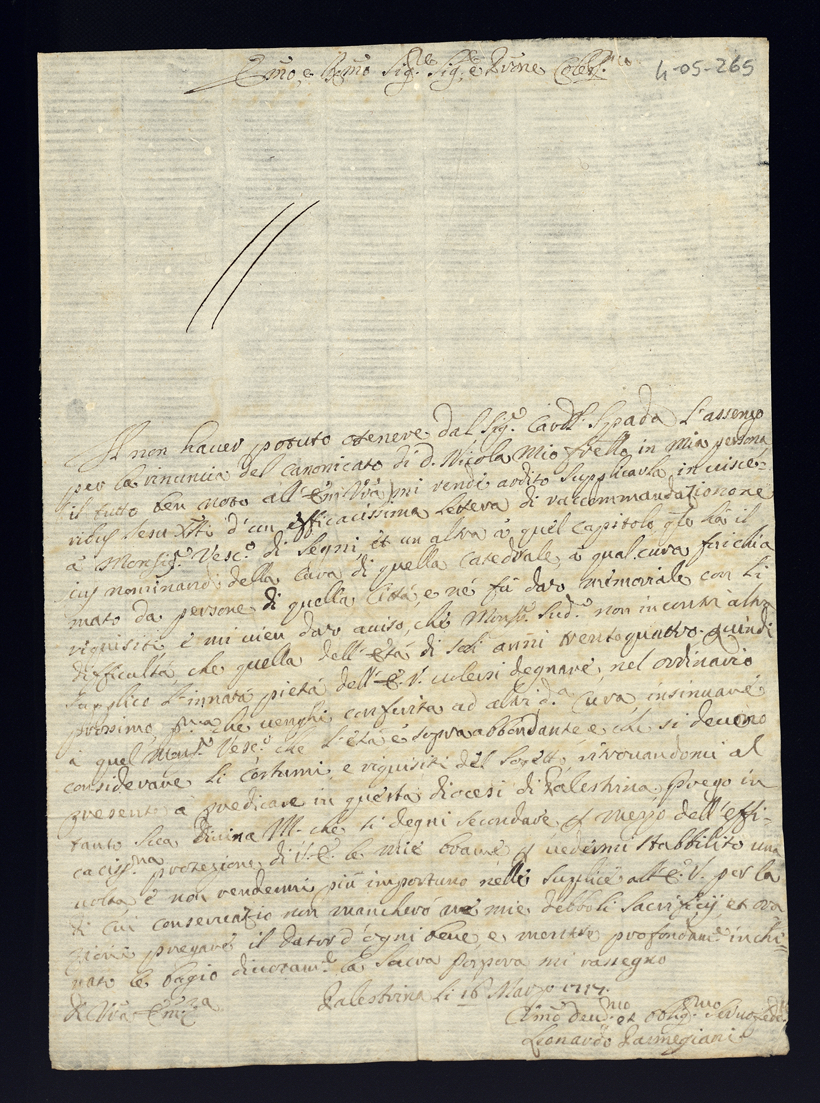 Emo, e Rmo Sigre Sigre e Prone Colmo
4-05-265
Il non hauer potuto ottenere dal Sigr Cardl Spada l'assenzo
per la rinuncia del Canonicato di D. Nicola mio frello in mia persona
il tutto ben noto all' Emza Vra, mi rendè ardito supplicarla in uisce-
ribus Jesu Xsti d'un efficacissima lettera di raccommandazionone
a Monsigr Vesco di Segni et un altra a quel Capitolo qle ha il
ius nominandi della Cura di quella Catedrale, a qual cura fui chia
mato da persone di quella Città, e nè fù dato memoriale con li
riquisiti, è mi uien dato auiso, che Monsr Sudo non incontri altra
difficultà che quella dell'età di soli anni uentoquattro quindi
supplico l'innata pietà dell'E. V. uolersi degnare, nel ordinario
prossimo pria che uenghi conferita ad altri da Cura insinuare
a quel Monsr Vesco che l'età è soprabbondante e che si deuono
considerare li costumi e riquisiti del Soggetto, ritrouandomi al
presente a predicare in questa diocesi di Palestrina. Prego in
tanto Sua Diuina M. che si degni secondare col mezzo dell'effi-
cacissma protezione di V. E. le mie brame di uedermi stabbilito una
uolta e non rendermi più importuno nelle suppliche all'E. V. per la
di cui conseruazio non mancherò nè mie debboli sacrificij et ora
zioni pregare il dator d'ogni bene e mentre profondame inchi-
nato le bagio diuotamte la Sacra Porpora mi rassegno
di Vra Emza
Palestrina li 16 Marzo 1717.
Umo Deumo et Obligmo Seruore
Leonardo Parmegiani